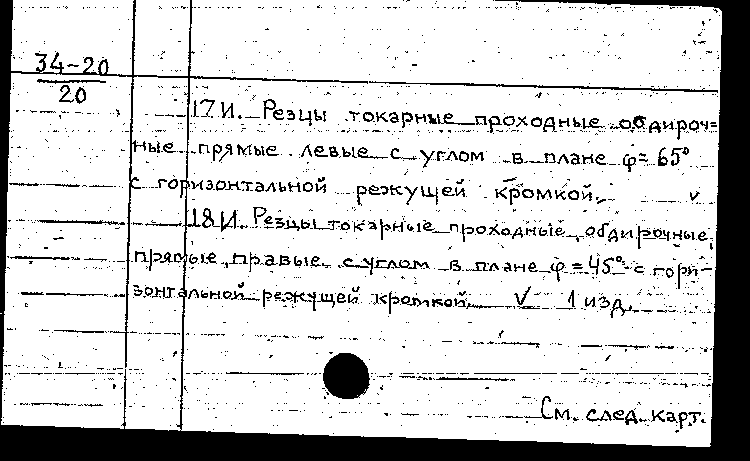 34-20
20
17И. Резцы токарные проходные обдироч=
ные прямые левые с углом в плане φ= 65°
с горизонтальной режущей кромкой. v
18И. Резцы токарные проходные, обдирочные,
прямые, правые с углом в плане φ = 45° с гори-
зонтальной режущей кромкой. V 1 изд.
См. след. карт.